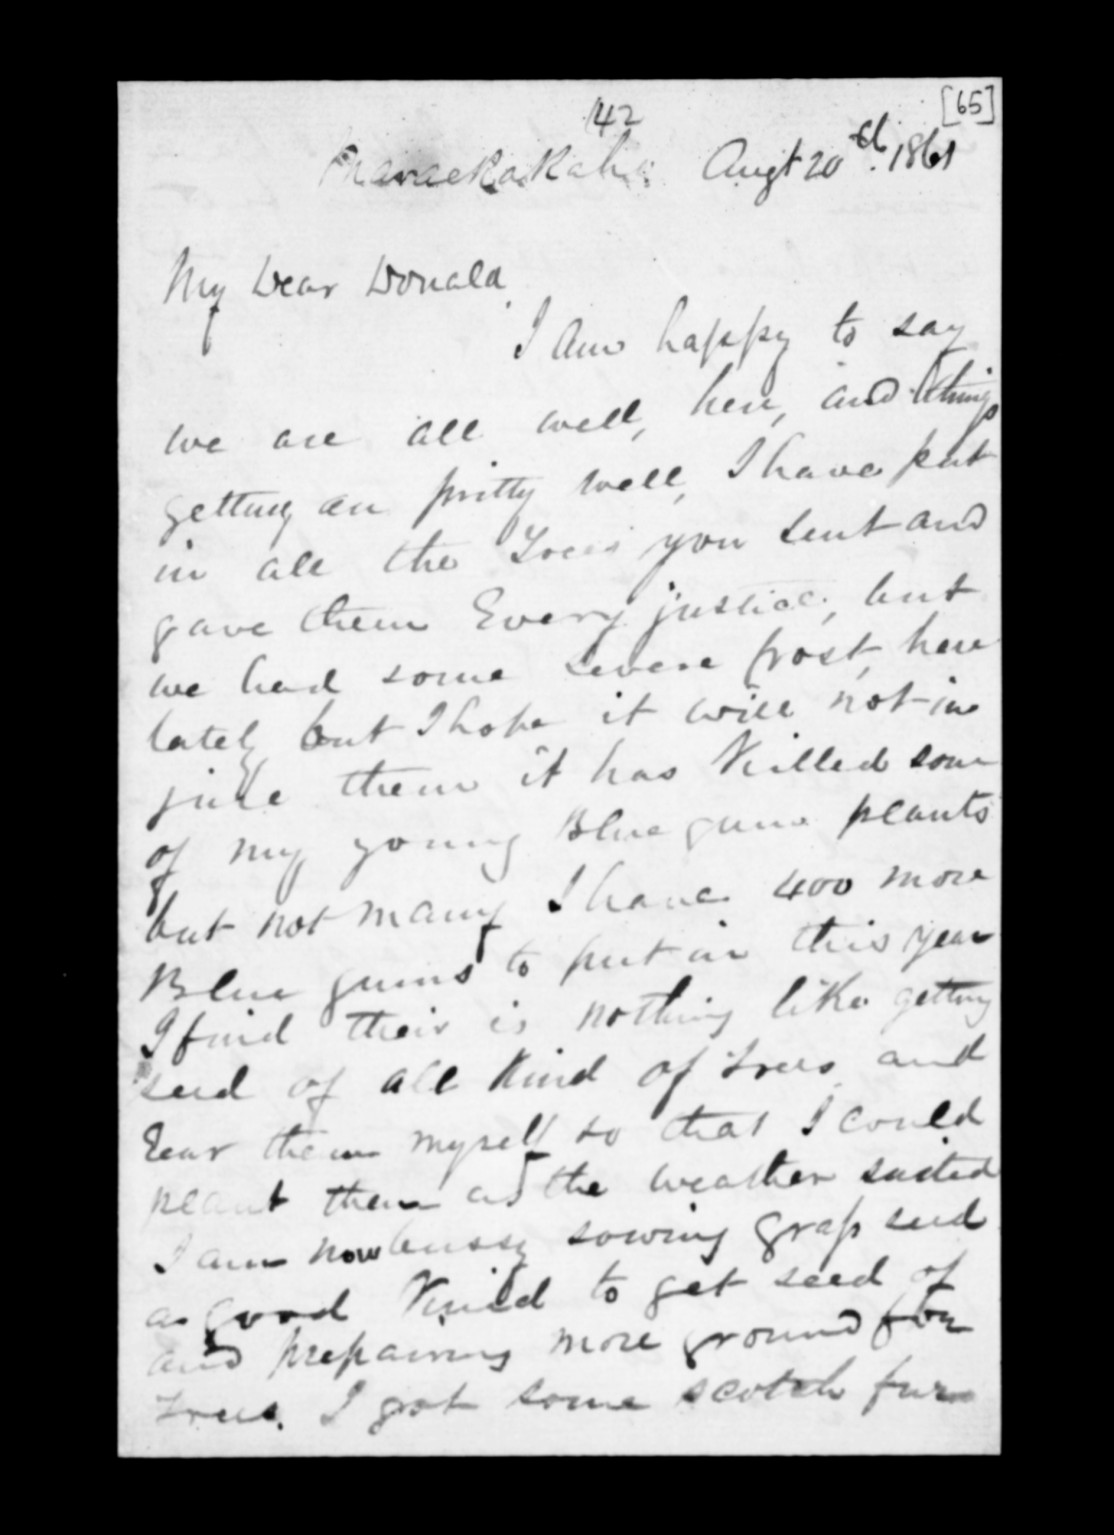 [65]
42
Maraekakaho Augt 20th 1861
My Dear Donald
I am happy to say
we are all well, here, and things
getting on pritty well, I have put
in all the Trees you sent and
gave them Every justice, but
we had some severe frost, here
lately but I hope it will not in
jure them it has Killed som
of my young Blue gum plants
but not many I have 400 more
Blue gums to put in this year
I find their is nothing like getting
seed of all Kind of trees and
Rear them myself so that I could
plant them as the weather suited
I am now bussy sowing grass seed
a good Kind to get seed of
and prepairing more ground for
trees. I got some scotch furs